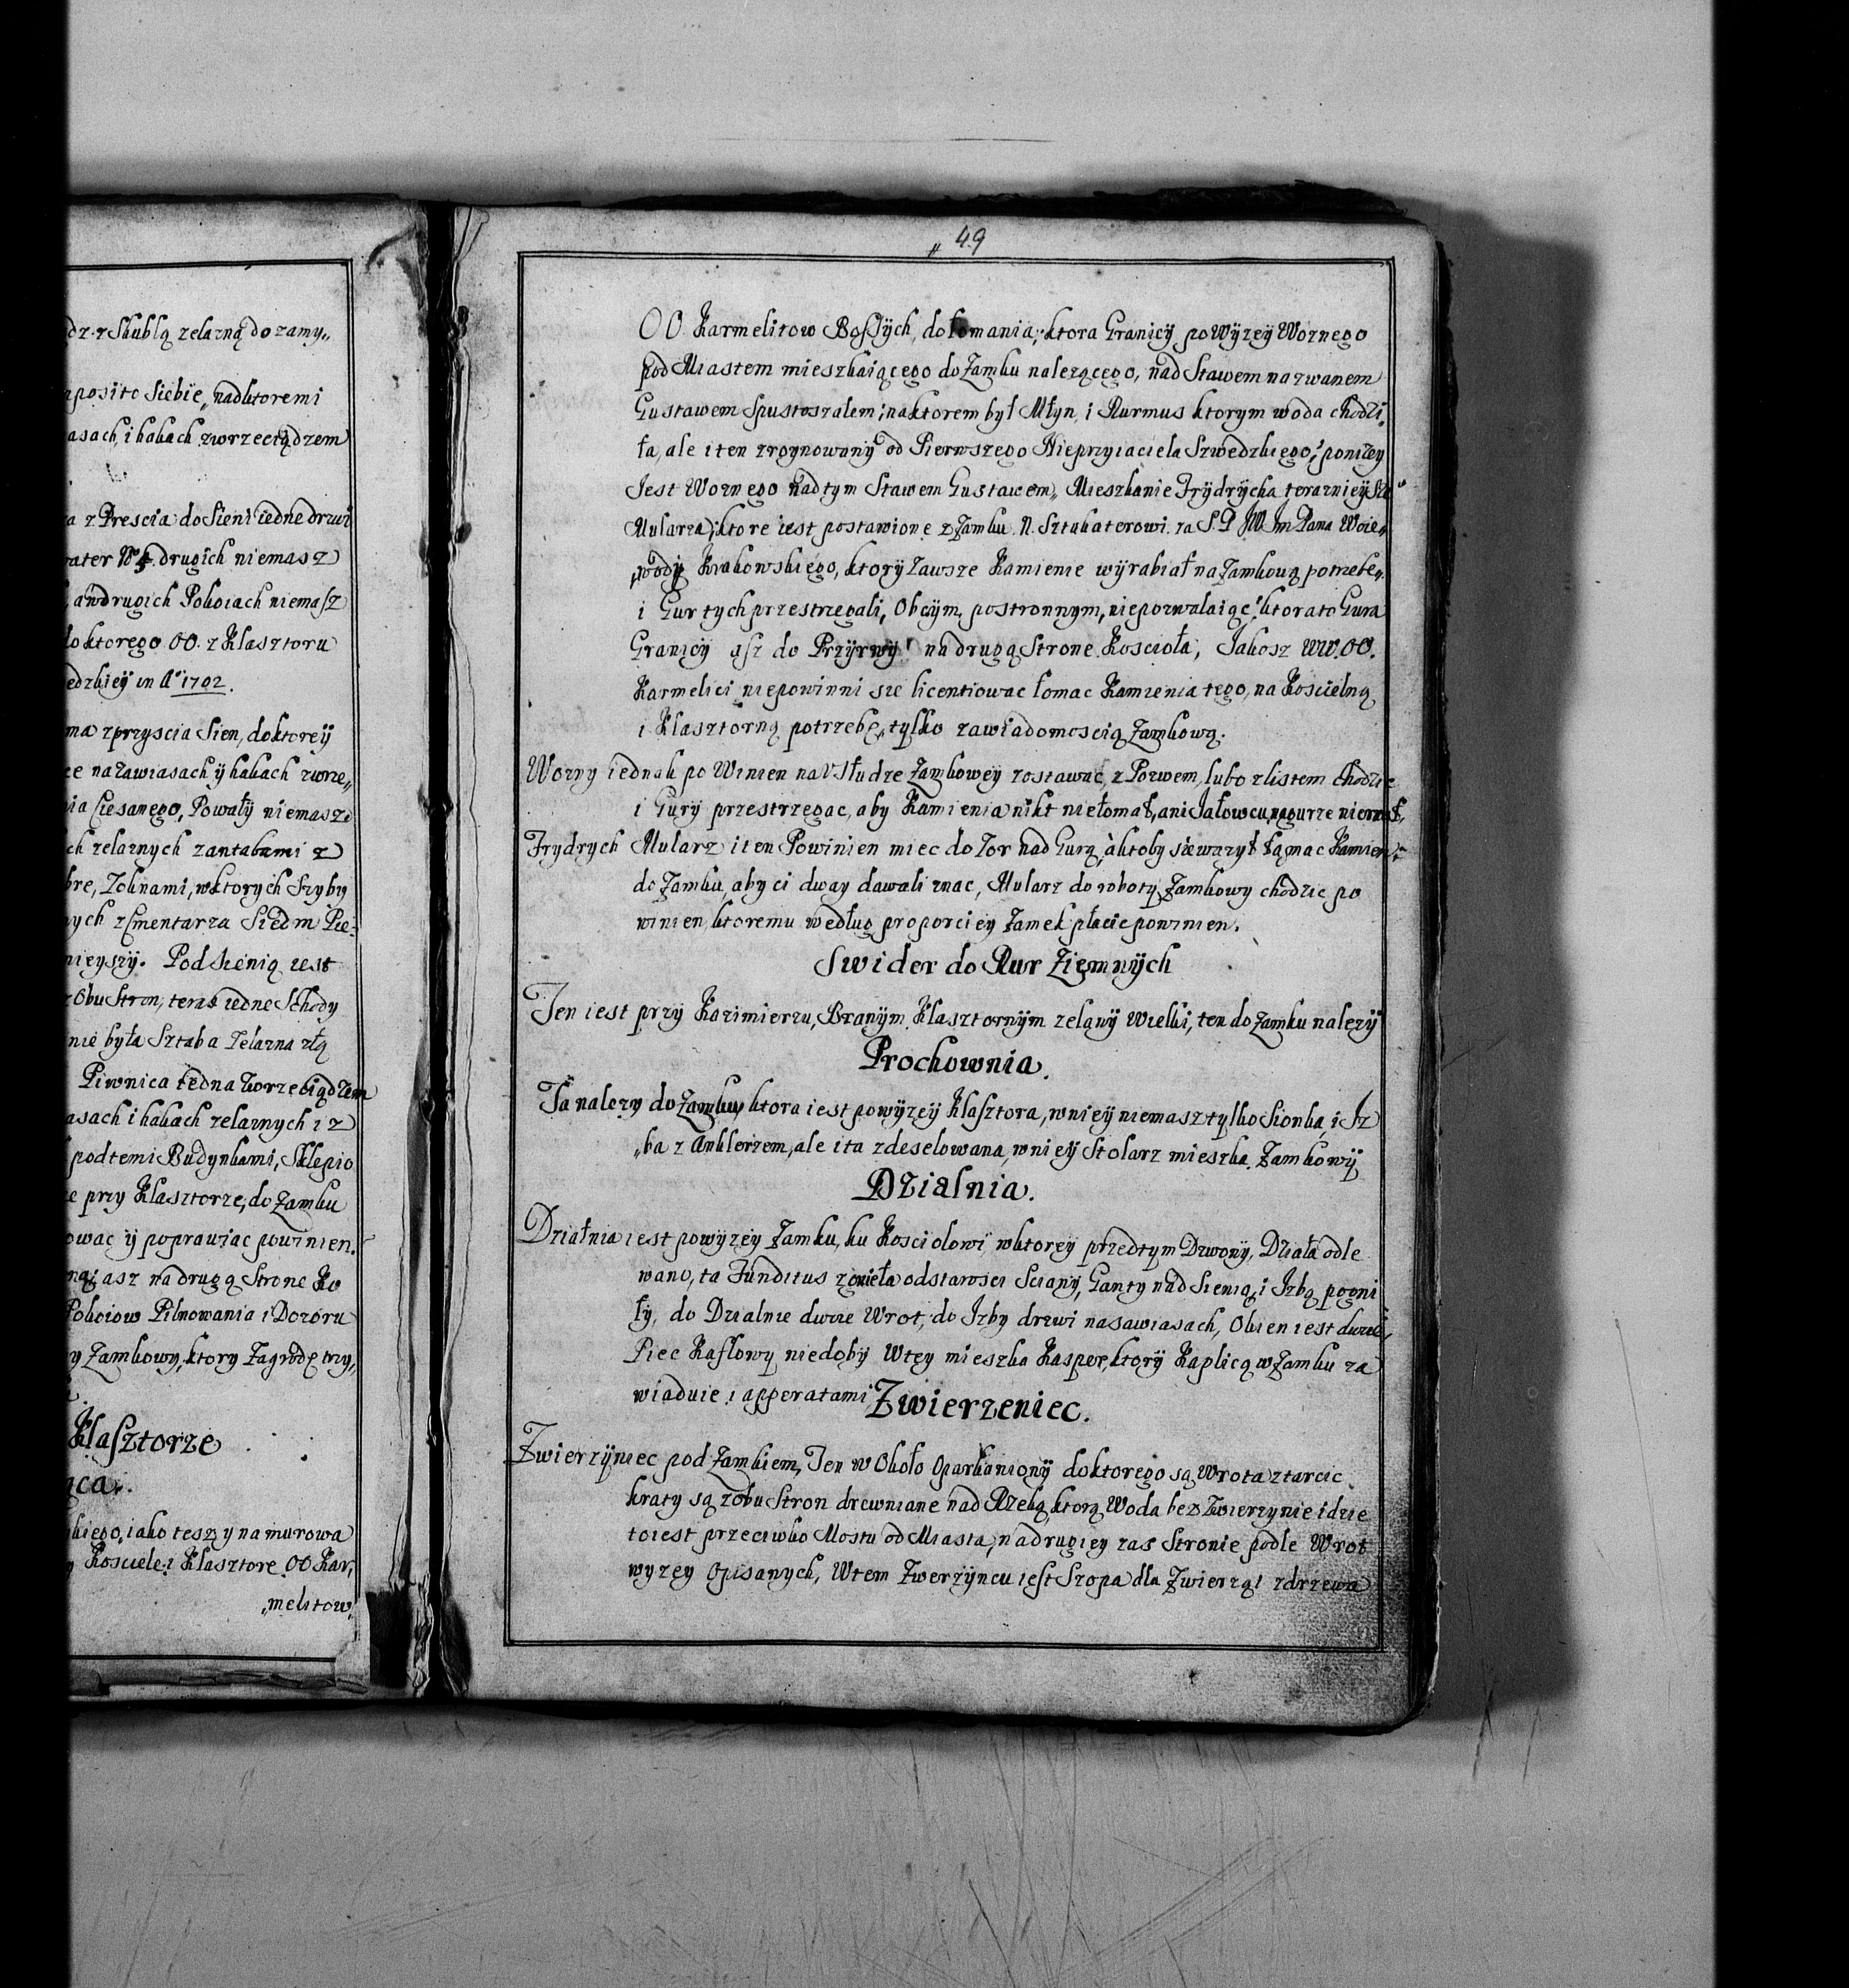 dz. z Skublą zelazną do zamy„
nposito Siebie, nad ktoremi
asach, i hakach zwrzeciądzem
a z Prescia do Sieni iedne drzwi
drugich niemasz
a w drugich Pokoiach niemasz
do ktorego OO. z Klasztoru
edzkiey in Aº 1702.
ma z przyscia Sien, do ktorey
ce na zawiasach ÿ hakach zwrze„
nia Ciesanego, Powały niemasz
ch zelaznych z antabami z
bre, Zoknami, w ktorych Szyby
nych z Cmentarza Siedm Pie„
nieyszÿ. Pod Sienią iest
z Obu Stron, teras iedne Schody
nie była Sztaba Zelazna złą
Piwnica iedna zwrzeciądzem
asach i hakach zelaznych i z
podtemi Budynkami, Sklepio
e przy Klasztorze, do Zamku
owac ÿ poprawiac powinien.
asz na drugą Strone Ko
Pokoiow Pilnowania i Dozoru
y Zamkowy, ktory Zagrodę trzy„
Klasztorze
nca.
kiego, iako tesz y namurowa
Kosciele i Klasztore OO Kar„
„melitow„
„ 49
OO. Karmelitow Bosſÿch, do łomania, ktora Granicÿ po Wÿzeÿ Woznego
pod Miastem mieszkaiącego do Zamku nalezącego, nad Stawem nazwanem
Gustawem Spustoszalem; na ktorem był Młyn, i Rurmus ktorym woda chodzi„
ła, ale i ten zroynowony od Pierwszego Nieprzyiaciela Szwedzkiego, ponizy
Jest Woznego nad tym Stawem Gustawem, Mieszkanie Frÿdrÿcha terazniejsze„
Mularza, ktore iest postawione z Zamku N. Sztukaterowi. za S.P. JW. Jm Pana Woie„
„wody Krakowskiego, ktorÿ Zawsze Kamienie wyrabiał na Zamkową potrzebe„
i Gur tych przestrzegali, Obcÿm, postronnym, niepozwalaigc, ktora to Gura
Granicÿ asz do Przÿrwÿ na drugą Strone Koscioła, Jakosz WW. OO.
Karmelici niepowinni sie licentiowac łomac Kamienia tego, na Koscielną
i Klasztorną potrzebę, tylko zawiadomoscią Zamkową.
Wozny iednak po Winien na Vsłudze Zamkowey zostawac, z Pozwem, lubo z listem chodzic
i Gurÿ przestrzegac, aby Kamienia nikt nie łomał, ani Jałowcu na gurze
Frydrych Mularz i ten Powinien miec do Zor nad Gurą, à ktoby sie wazył łąmac Kamien„
do Zamku, aby ci dway dawali znac, Mularz do robotÿ Zamkowy chodzic po
winien, ktoremu według proporciey Zamek płacic powinien.
Swider do Rur Ziemnÿch
Ten iest przÿ Kazimierzu, Branÿm Klasztornÿm zelanÿ Wielki, ten do Zamku nalezÿ
Prochownia.
Ta nalezy do Zamku, ktora iest powÿzeÿ Klasztora, w nieÿ niemasz tylko Sionka, i Jz
„ba z Anklerzem, ale i ta zdeselowana, w nieÿ Stolarz mieszka Zamkowÿ
Dzialnia.
Działnia iest powÿzeÿ Zamku, ku Kosciolowi, w ktoreÿ przedtym Dzwonÿ, Działa odle
wano, ta Funditus zgnieła od starosci Scianÿ, Ganty nad Sienią, i Jzbą pogni
łÿ, do Dzialnie dwoie Wrot, do Jzby drzwi nasawiasach, Okien iest dwoie,
Piec Kaflowy niedobÿ Wtey mieszka Kasper, ktorÿ Kaplicą w Zamku za
wiaduie i apperatami
Zwierzeniec.
Zwierzÿniec pod Zamkiem, Ten w Około Oparkanionÿ do ktorego są Wrota z tarcic
kraty są zobu Stron drewniane nad Rzeką, ktorą Woda bez Zwierzynie idzie
to iest przeciwko Mostu od Miasta, na drugiey zas Stronie podle Wrot
wyzey Opisanych, W tem Zwerzÿncu iest Szopa dla Zwierząt z drzewa